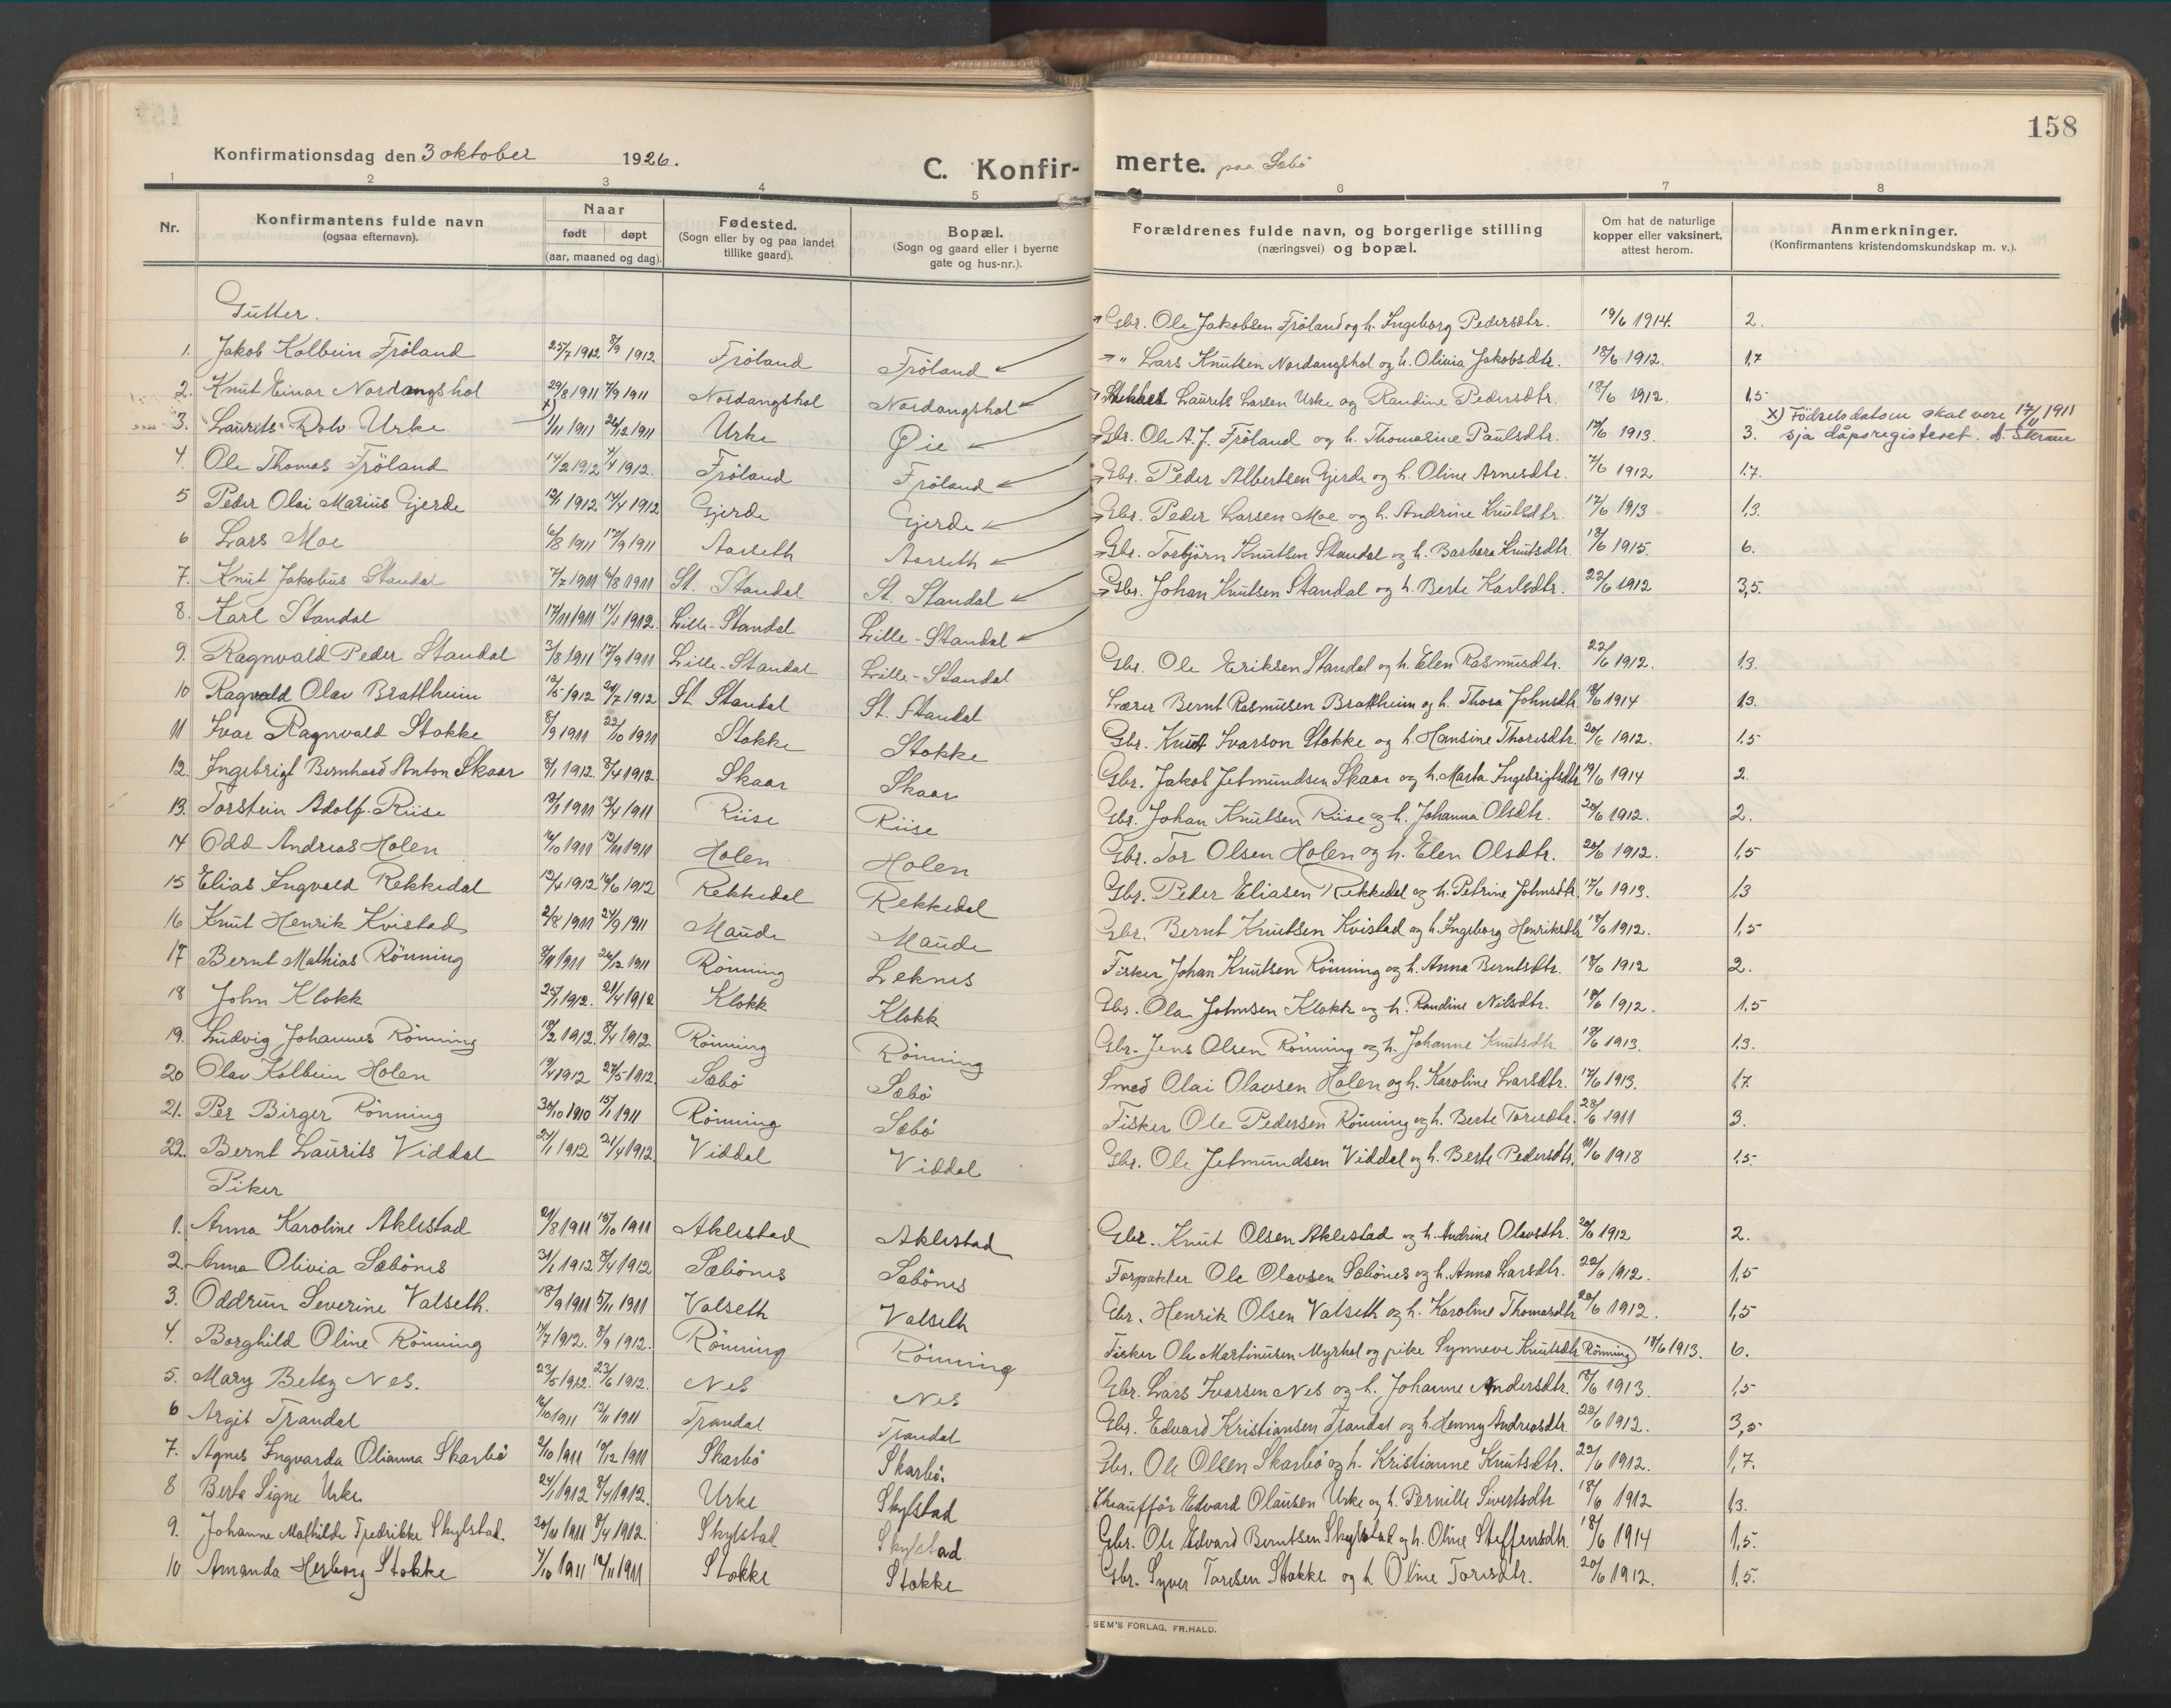 158
Konfirmationsdag den 3 oktober 1926.
C. Konfir- merte. paa Sæbö
1 2 3 4 5 6 7 8
Nr.
Konfirmantens fulde navn
(ogsaa efternavn).
Naar
født døpt
(aar, maaned og dag).
Fødested.
(Sogn eller by og paa landet
tillike gaard).
Bopæl.
(Sogn og gaard eller i byerne
gate og hus-nr.).
Forældrenes fulde navn, og borgerlige stilling
(næringsvei) og bopæl.
Om hat de naturlige
kopper eller vaksinert,
attest herom.
Anmerkninger.
(Konfirmantens kristendomskundskap m. v.).
Gutter.
1. Jakob Kolbein Fröland 25/7 1912 8/9 1912 Fröland Fröland Gbr. Ole Jakobsen Fröland og h. Ingeborg Pedersdtr. 19/6 1914. 2.
2. Knut Einar Nordangshol 29/8 1911 7/9 1911 Nordangshol Nordangshol " Lars Knutsen Nordangshol og h. Olivia Jakobsdtr. 18/6 1912. 1,7
3. Laurits Rolv Urke x) /11 1911 26/12 1911 Urke Øie Laurits Larsen Urke og Randine Pedersdtr. 18/6 1912. 1,5
x) Födselsdatoen skal vere 17/11 1911
sja dåpsregisteret.
4. Ole Thomas Fröland 14/2 1912 4/4 1912. Fröland Fröland Gbr. Ole A. J. Fröland og h. Thomasine Paulsdtr. 17/6 1913. 3.
5 Peder Olai Marius Gjerde 12/1 1912 14/4 1912 Gjerde Gjerde Gbr. Peder Albertsen Gjerde og h. Oline Arnesdtr. 7/6 1912 1.7.
6 Lars Moe 6/8 1911 17/9 1911 Aarseth Aarseth Gbr. Peder Larsen Moe og h. Andrine Knutsdtr. 17/6 1913 1,3.
7. Knut Jakobus Standal 7/7 1911 6/8 1911 St. Standal St. Standal Gbr. Torbjörn Knutsen Standal og h. Barbara Knutsdtr. 18/6 1915. 6.
8. Karl Standal 17/11 1911 14/1 1912. Lille-Standal Lille-Standal Gbr. Johan Knutsen Standal og h. Berte Karlsdtr. 22/6 1912 3,5.
9. Ragnvald Peder Standal 3/8 1911 17/9 1911 Lille-Standal Lille-Standal Gbr. Ole Eriksen Standal og h. Elen Rasmusdtr. 22/6 1912. 1.3.
10 Ragvald Olav Brattheim 12/5 1912 24/7 1912 St. Standal St. Standal Lærer Bernt Rasmusen Brattheim og h. Thora Johnsdtr. 18/6 1914 1.3.
11 Ivar Ragnvald Stokke 8/9 1911 22/10 1911 Stokke Stokke Gbr. Knut Ivarson Stokke og h. Hansine Thoresdtr. 20/6 1912. 1.5
12. Ingebrigt Bernhard Anton Skaar 8/1 1912. 8/4 1912. Skaar Skaar Gbr. Jakob Jetmundsen Skaar og h. Marta Ingebrigtsdtr. 19/6 1914 2.
13. Torstein Adolf Riise 13/3 1911 13/4 1911 Riise Riise Gbr. Johan Knutsen Riise og h. Johanna Olsdtr. 20/6 1912. 2.
14 Odd Andreas Holen 16/10 1911 12/11 1911 Holen Holen Gbr. Tor Olsen Holen og h. Elen Olsdtr. 20/6 1912. 1,5
15 Elias Ingvald Rekkedal 12/4 1912 16/6 1912 Rekkedal Rekkedal Gbr. Peder Eliasen Rekkedal og h. Petrine Johnsdtr. 17/6 1913. 1,3
16 Knut Henrik Kvistad 2/8 1911 24/9 1911 Maude Maude Gbr. Bernt Knutsen Kvistad og h. Ingeborg Henriksdtr. 18/6 1912. 1,5
17 Bernt Mathias Rönning 9/11 1911 26/12 1911 Rönning Leknes Fisker Johan Knutsen Rönning og h. Anna Berntsdtr. 18/6 1912 2.
18 John Klokk 25/1 1912. 21/4 1912 Klokk Klokk Gbr. Ola Johnsen Klokk og h. Randine Nilsdtr. 18/6 1912. 1.5
19. Ludvig Johannes Rönning 18/2 1912. 8/4 1912 Rönning Rönning Gbr. Jens Olsen Rönning og h. Johanne Knutsdtr. 18/6 1913. 1.3.
20 Olav Kolbein Holen 19/4 1912 27/5 1912. Sæbö Sæbö Smed Olai Olavsen Holen og h. Karoline Larsdtr. 17/6 1913. 1.7
21. Per Birger Rönning 30/10 1910 15/1 1911 Rönning Sæbö Fisker Ole Pedersen Rönning og h. Berte Toresdtr. 28/6 1911 3.
22. Bernt Laurits Viddal 27/1 1912 21/4 1912. Viddal Viddal Gbr. Ole Jetmundsen Viddal og h. Berte Pedersdtr. 11/6 1918 1.5.
Piker
1. Anna Karoline Aklestad 29/8 1911 15/10 1911 Aklestad Aklestad Gbr. Knut Olsen Aklestad og h. Andrine Olavsdtr. 20/6 1912 2.
2. Anna Olivia Sæbönes 31/1 1912 8/4 1912 Sæbönes Sæbönes Forpakter Ole Olavsen Sæbönes og h. Anna Larsdtr. 22/6 1912. 1,5
3. Oddrun Severine Valseth. 18/9 1911 5/11 1911 Valseth Valseth Gbr. Henrik Olsen Valseth og h. Karoline Thomasdtr. 20/6 1912. 1,5
4. Borghild Oline Rönning 14/7 1912. 8/9 1912. Rönning Rönning Fisker Ole Martinusen Myrhol og pike Synneve Knutsdtr. Rönning 18/6 1913. 6.
5. Mary Betsy Nes. 23/5 1912. 23/6 1912. Nes Nes Gbr. Lars Ivarsen Nes og h. Johanne Andersdtr. 17/6 1913. 1,5
6 Argit Trandal 16/10 1911 12/11 1911 Trandal Trandal Gbr. Edvard Kristiansen Trandal og h. Henny Andreasdtr. 22/6 1912. 3,5
7. Agnes Ingvarda Olianna Skarbö 2/10 1911 10/12 1911 Skarbö Skarbö. Gbr. Ole Olsen Skarbö og h. Kristianne Knutsdtr. 22/6 1912. 1,7.
8 Berta Signe Urke 24/1 1912 8/4 1912. Urke Skylstad Chauffør Edvard Olausen Urke og h. Pernille Sivertsdtr 18/6 1912 1.3.
9. Johanne Mathilde Fredrikke Skylstad. 20/11 1911 8/4 1912. Skylstad Skylstad Gbr. Ole Edvard Berntsen Skylstad og h. Oline Steffensdtr. 18/6 1914 1,5.
10 Amanda Herborg Stokke 7/10 1911 12/11 1911 Stokke Stokke Gbr. Syver Toresen Stokke og h. Oline Toresdtr. 20/6 1912. 1,5.
SEM'S FORLAG, FR.HALD.